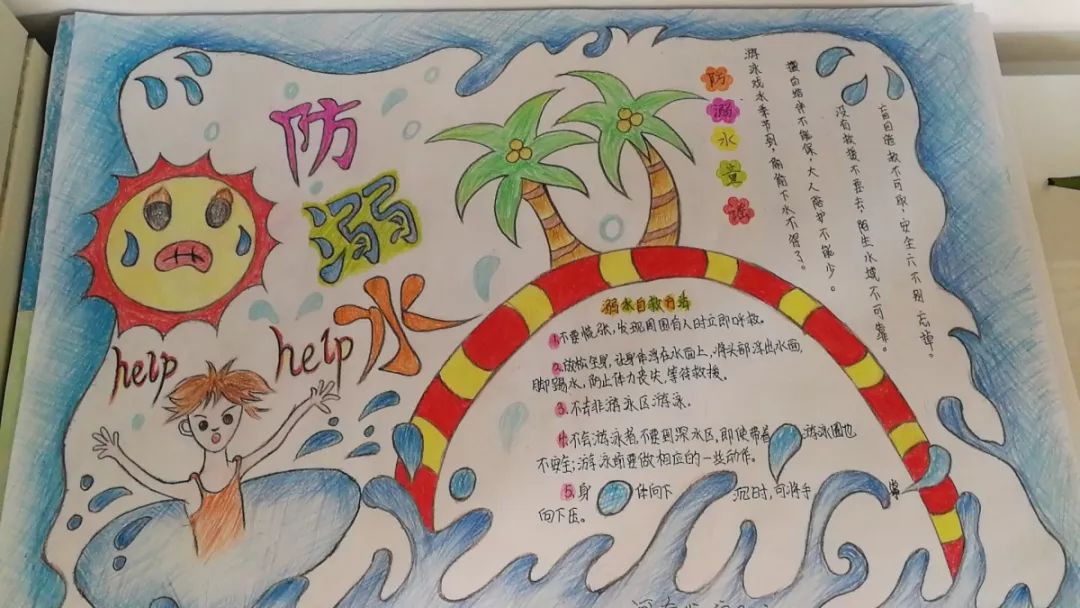 防
溺
水
help
help
防
溺
水
童
谣
游泳戏水季节到,
下水不得了。
擅自结伴不能保,大人陪护不能少。
没有救援不要去,陌生水域不可靠。
盲目施救不可取,安全六不别忘掉。
溺水自救方法
1.不要慌张,发现周围有人时立即呼救。
2.放松全身,让身体浮在水面上,将头部浮出水面,
脚踢水,防止体力丧失,等待救援。
3.不去非游泳区游泳。
4.不会游泳者,不要到深水区,即使带着游泳圈也
不安全;游泳前要做相应的一些动作。
5.身体向下沉时,可将手掌
向下压。